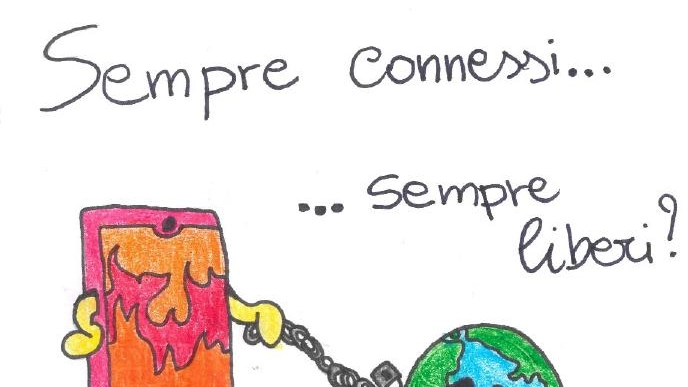 Sempre connessi...
... sempre
liberi?